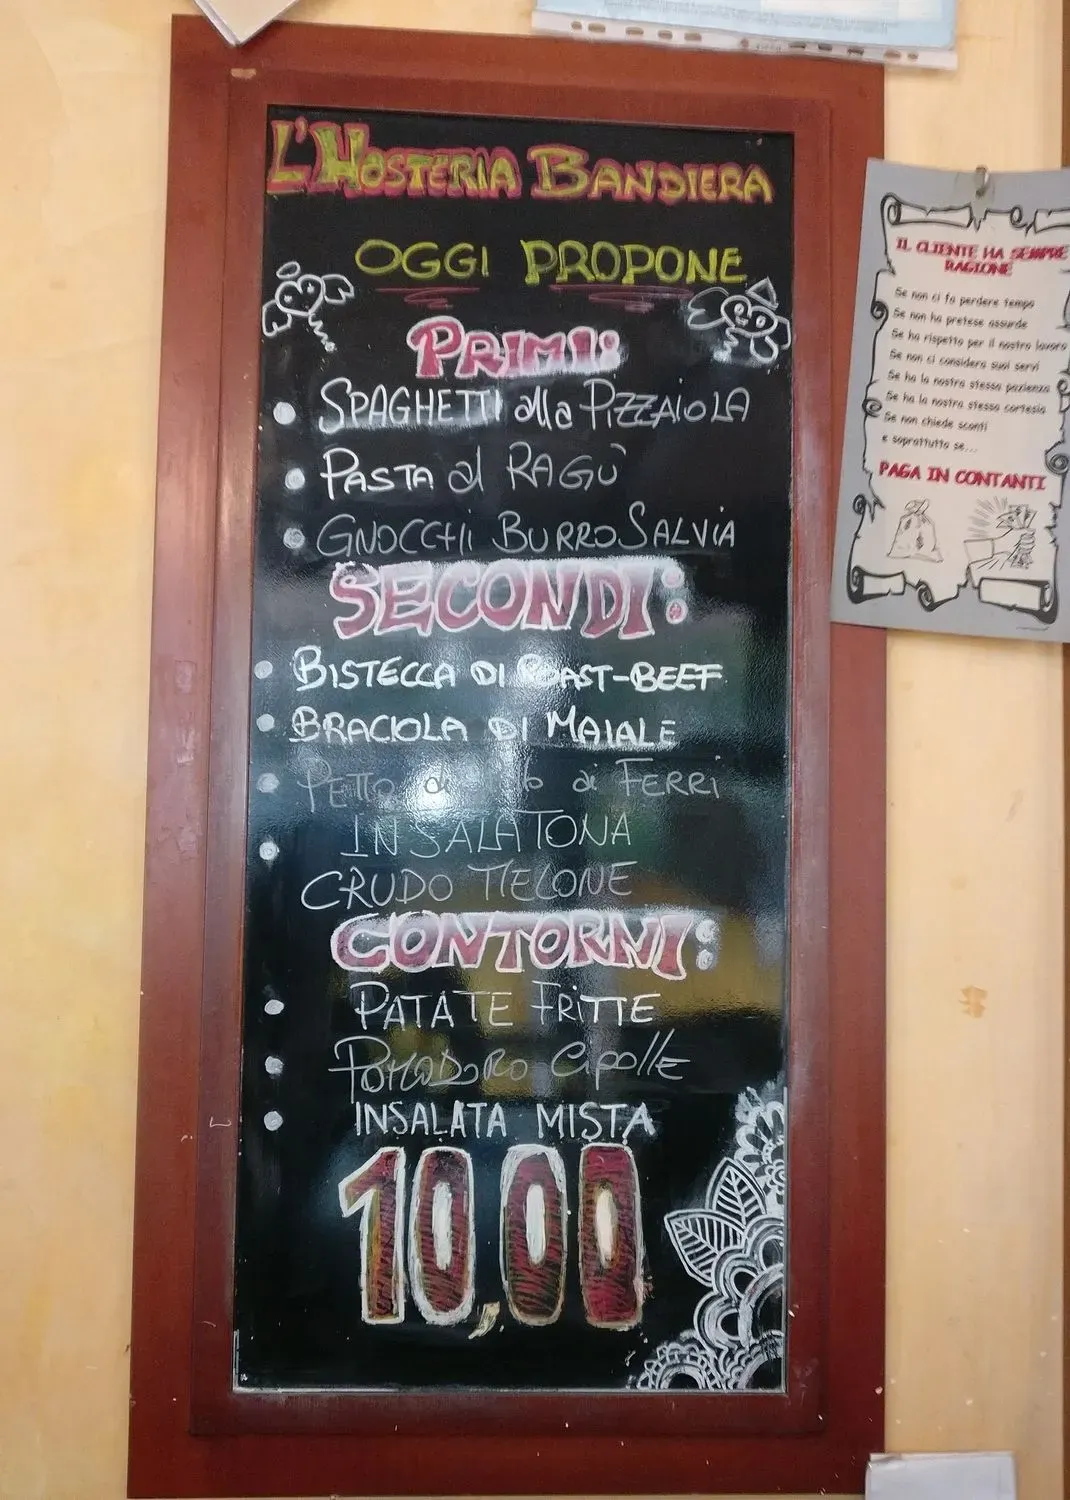 L'HOSTERIA BANDIERA
OGGI PROPONE
PRIMI:
SPAGHETTI alla PIZZAIOLA
PASTA al RAGÙ
GNOCCHI BURRO SALVIA
SECONDI:
BISTECCA DI ROAST-BEEF
BRACIOLA DI MAIALE
PETTO di ai FERRI
INSALATONA
CRUDO MELONE
CONTORNI:
PATATE FRITTE
POMODORO Cipolle
INSALATA MISTA
10,00
IL CLIENTE HA SEMPRE
RAGIONE
Se non ci fa perdere tempo
Se non ha pretese assurde
Se ha rispetto per il nostro lavoro
Se non ci considera suoi servi
Se ha la nostra stessa pazienza
Se ha la nostra stessa cortesia
Se non chiede sconti
e soprattutto se...
PAGA IN CONTANTI